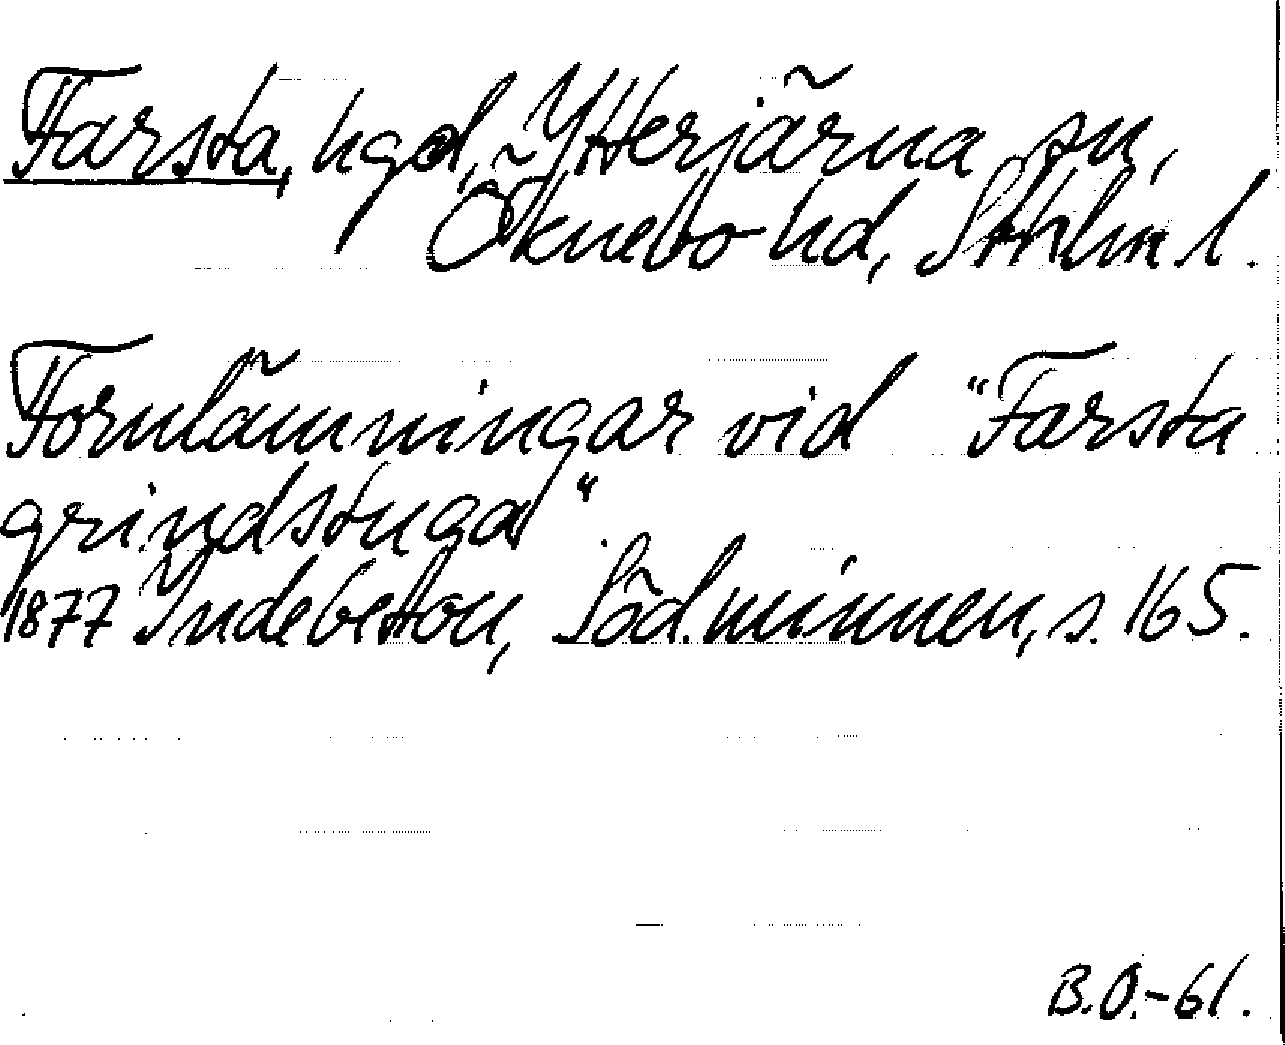 Farsta, hgd, Ytterjärna sn,
Öknebo hd, Sthlm l.
Fornlämningar vid "Farsta
grindstuga".
1877 Indebetou, Söd. minnen, s. 165.
B.O.-61.